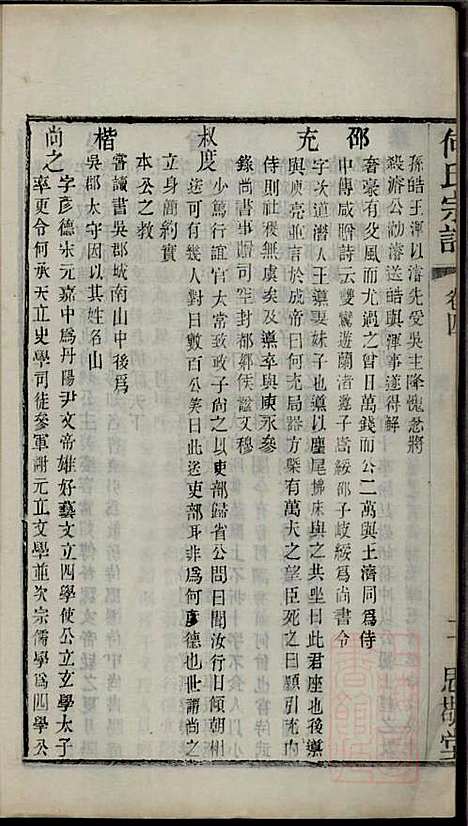 何氏宗譜
卷四
思敬堂
孫皓王渾以濬先受吳主降愧忿將
殺濬公勸濬送皓與渾事遂得解
邵
奢豪有父風而尤過之曾日萬錢而公二萬與王濟同為侍
中傅咸贈詩云雙鸞遊蘭渚邀子嵩綏邵子岐綏為尚書令
充
字次道潛人王導妻妹子也導以麈尾拂床與之共坐曰此君座也後導
與庾亮並言於成帝曰何充局器方槩有萬夫之望臣死之日願引充內
侍則社稷無虞及導卒與庾氷參
錄尚書事司空封都鄉侯諡文穆
叔度
少篤行誼官太常致政子尚之以吏部歸省公問曰聞汝行日傾朝相
送可有幾人對曰數百公笑曰此送吏部耳非為何彥德也世謂尚之
立身簡約實
本公之教
楷
嘗讀書吳郡城南山中後為
吳郡太守因以其姓名山
尚之
字彥德宋元嘉中為丹陽尹文帝雄好藝文立四學使公立玄學太子
率更令何承天立史學司徒參軍謝元立文學並次宗儒學為四學公